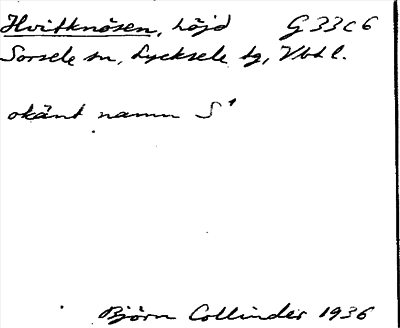 Hvitknösen, höjd G 33 c 6
Sorsele sn, Lycksele lg, Vbtl.
okänt namn S¹
Björn Collinder 1936